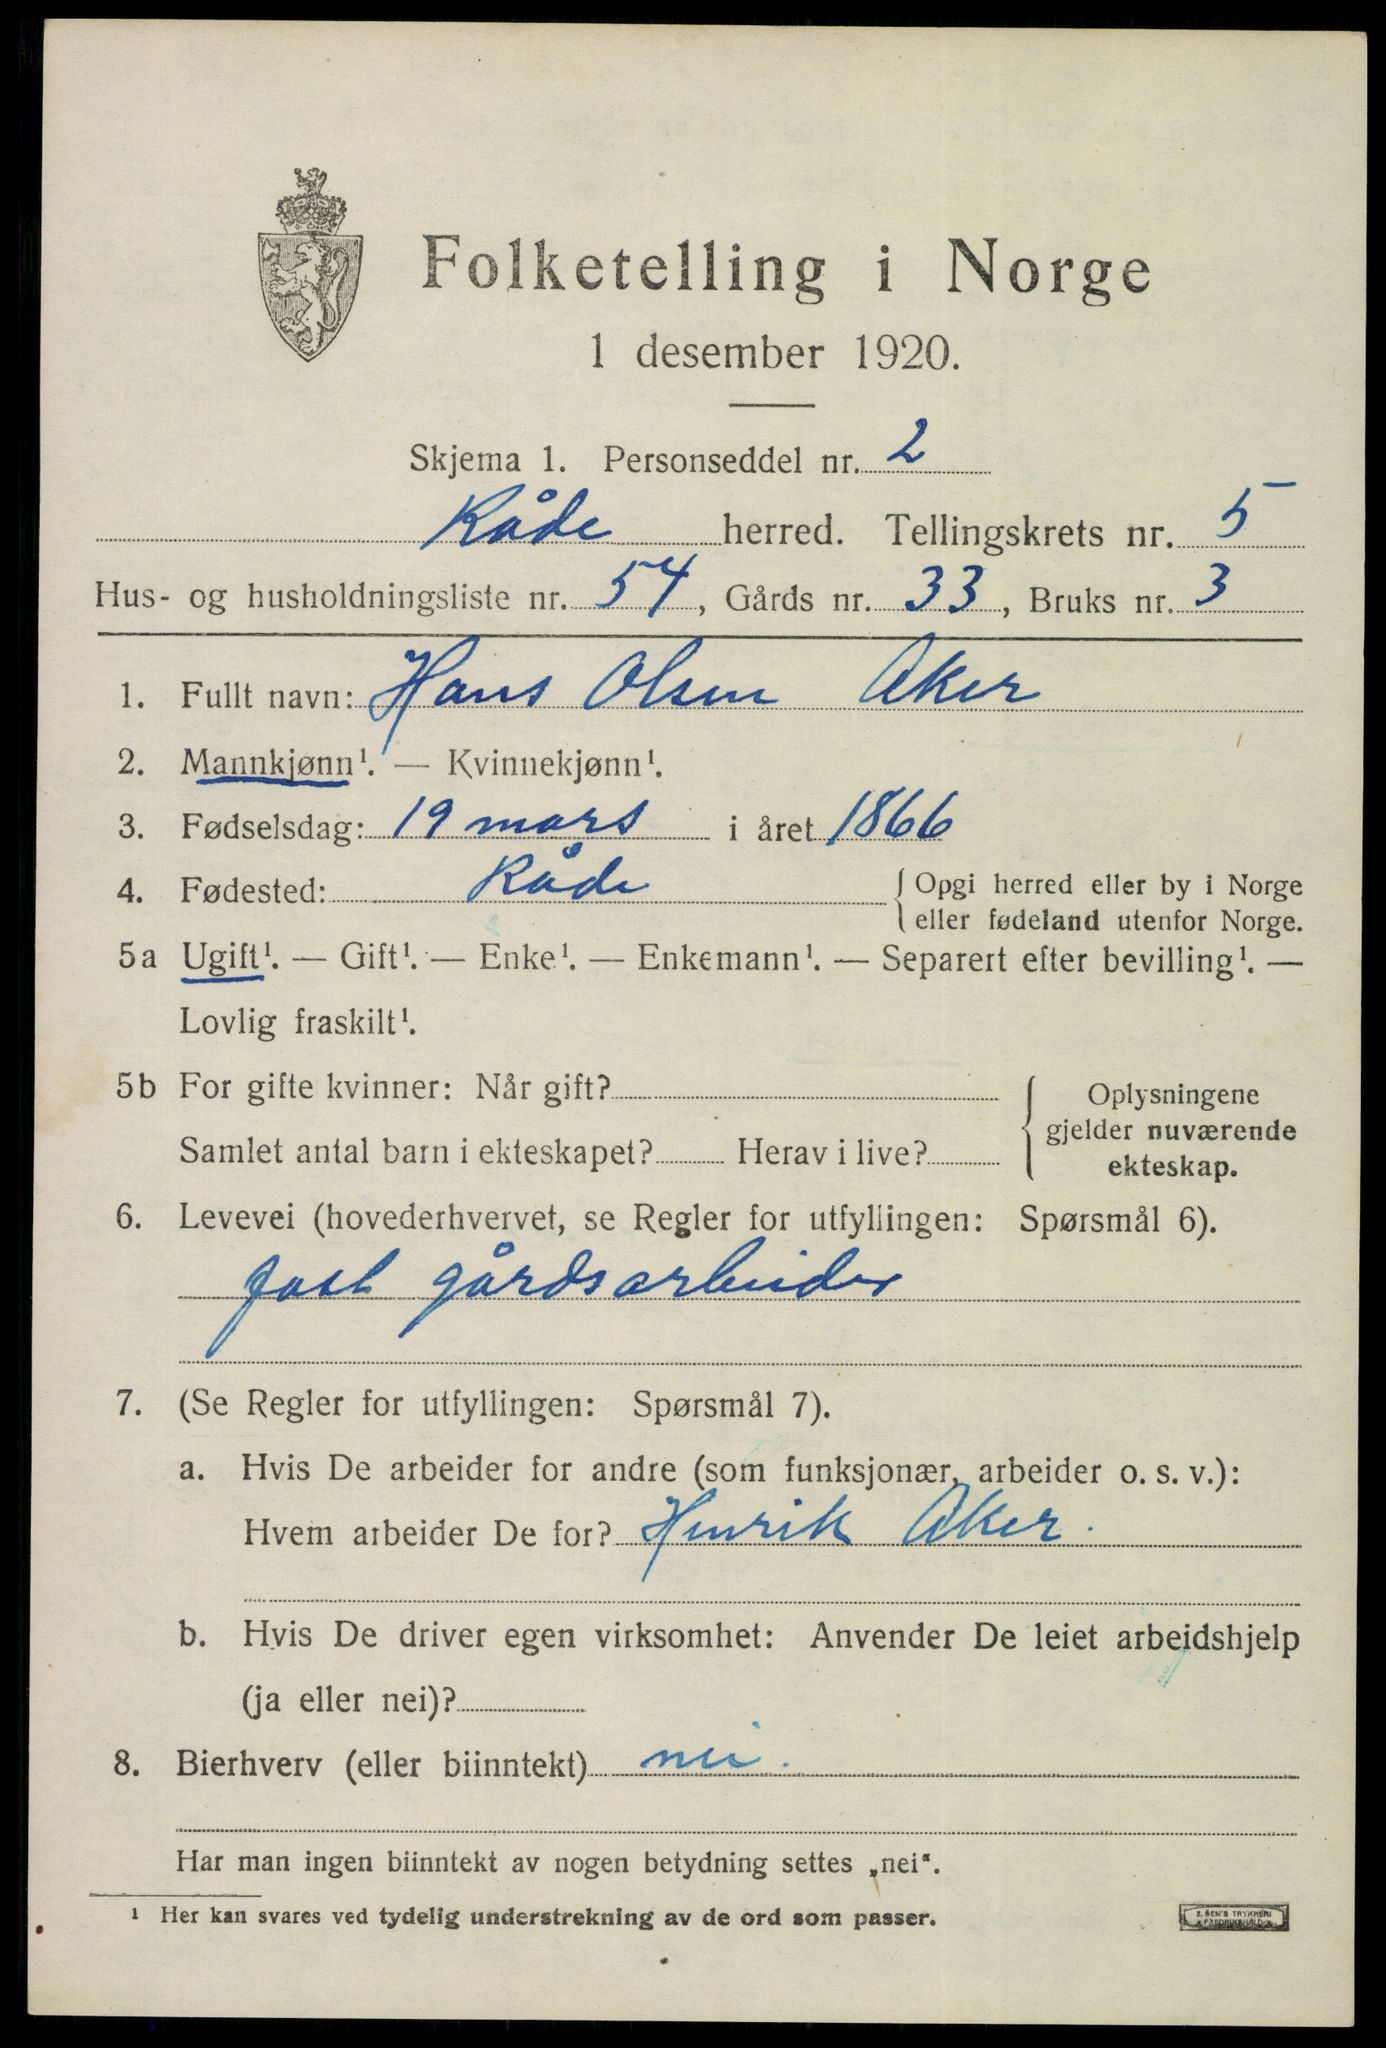 Folketelling i Norge
1 desember 1920.
Skjema 1. Personseddel nr. 2
Råde herred. Tellingskrets nr. 5
Hus- og husholdningsliste nr. 54, Gårds nr. 33, Bruks nr. 3
1. Fullt navn: Hans Olsen Aker
2. Mannkjønn¹. — Kvinnekjønn¹.
3. Fødselsdag: 19 mars i året 1866
4. Fødested: Råde { Opgi herred eller by i Norge
eller fødeland utenfor Norge.
5a Ugift¹. — Gift¹. — Enke¹. — Enkemann¹. — Separert efter bevilling¹. —
Lovlig fraskilt¹.
5b For gifte kvinner: Når gift?
Samlet antal barn i ekteskapet? Herav i live?
{ Oplysningene
gjelder nuværende
ekteskap.
6. Levevei (hovederhvervet, se Regler for utfyllingen: Spørsmål 6).
fast gårdsarbeider
7. (Se Regler for utfyllingen: Spørsmål 7).
a. Hvis De arbeider for andre (som funksjonær, arbeider o. s. v.):
Hvem arbeider De for? Henrik Aker.
b. Hvis De driver egen virksomhet: Anvender De leiet arbeidshjelp
(ja eller nei)?
8. Bierhverv (eller biinntekt) nei.
Har man ingen biinntekt av nogen betydning settes „nei“.
¹ Her kan svares ved tydelig understrekning av de ord som passer.
SEM'S TRYKKERI
FREDRIKSHALD